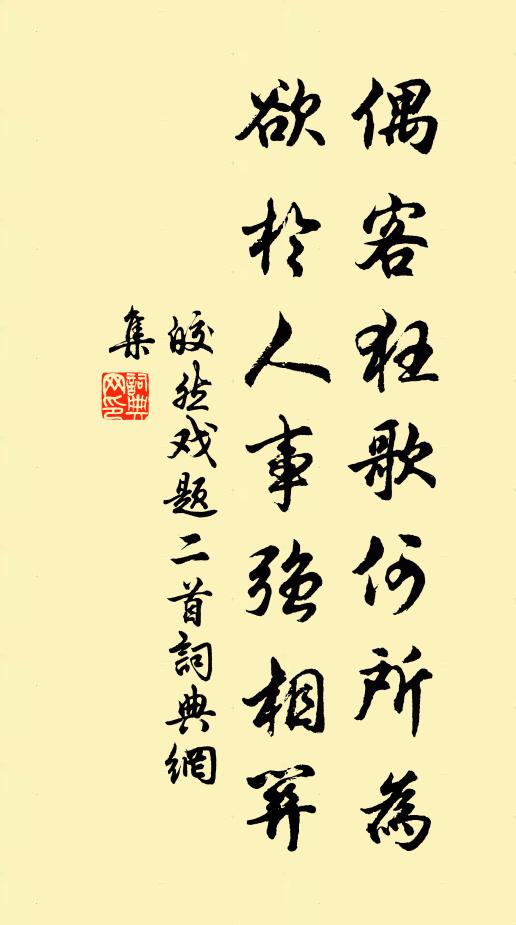 偶客狂歌何所為
欲於人事強相異
皎然戏题二首詞典網
集
詞典网印